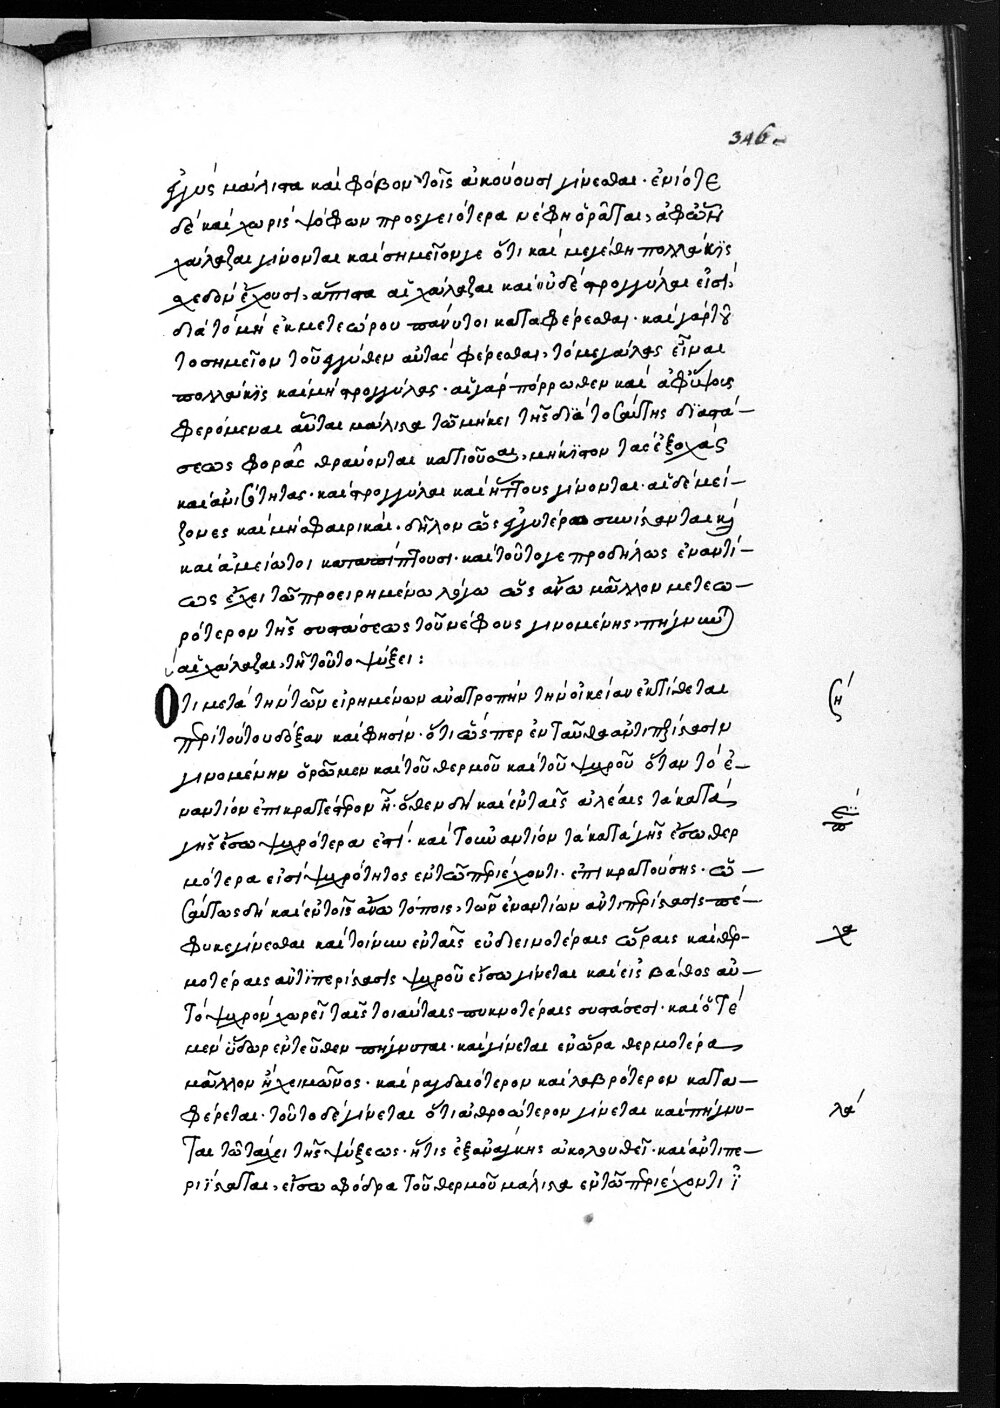 346
ἐγγὺς μάλιστα καὶ φόβον τοῖς ἀκούουσι γίνεσθαι· ἐνίοτε
δὲ καὶ χωρὶς ψόφων προσγειότερα νέφη ὁρᾶται,
χάλαζαι γίνονται καὶ σημεῖόν γε ὅτι καὶ μεγέθη πολλάκις
ἔχουσι, αἱ χάλαζαι καὶ οὐδὲ στρογγύλαι εἰσὶ,
διὰ τὸ μὴ ἐκ μετεώρου πάνυ τοι καταφέρεσθαι· καὶ γάρ τοι
τὸ σημεῖον τοῦ ἐγγύθεν αὐτὰς φέρεσθαι, τὸ μεγάλας εἶναι
πολλάκις καὶ μὴ στρογγύλας· αἱ γὰρ πόρρωθεν καὶ ἀφ' ὕψους
φερόμεναι αὗται μάλιστα τῶ μήκει τῆς διὰ τοσαύτης διαστά-
σεως φορᾶς θραύονται κατιοῦσαι, τὰς ἐξοχὰς
καὶ ἀνισότητας· καὶ στρογγύλαι καὶ ἥττους γίνονται· αἱ δὲ μεί-
ζονες καὶ μὴ σφαιρικαὶ· δῆλον ὡς ἐγγυτέρω συνίστανται
καὶ ἀμείωτοι καταπίπτουσι· καὶ τοῦτό γε προδήλως ἐναντί-
ως ἔχει τῶ προειρημένω λόγω ὡς ἄνω μᾶλλον μετεω-
ρότερον τῆς συστάσεως τοῦ νέφους γινομένης, πήγνυσθαι
αἱ χάλαζαι, τῆ τούτου ψύξει:
Ὅτι μετὰ τὴν τῶν εἰρημένων ἀνατροπὴν τὴν οἰκείαν ἐκτίθεται
περὶ τούτου δόξαν καὶ φησίν· ὅτι ὥσπερ ἐνταῦθα ἀντιπερίστασιν
γινομένην ὁρῶμεν καὶ τοῦ θερμοῦ καὶ τοῦ ψυχροῦ ὅταν τὸ ἐ-
ναντίον ἐπικρατέστερον ἦ· ὅθεν δὴ καὶ ἐν ταῖς ἀλέαις τὰ κατὰ
γῆς ἔσω ψυχρότερα ἐστί· καὶ τοὐναντίον τὰ κατὰ γῆς ἔσω θερ
μότερα εἰσὶ ψυχρότητος ἐν τῶ περιέχοντι ἐπικρατούσης· ὡ-
σαύτως δὴ καὶ ἐν τοῖς ἄνω τόποις, τῶν ἐναντίων ἀντιπερίστασις πέ-
φυκε γίνεσθαι καὶ τοίνυν ἐν ταῖς εὐδιεινοτέραις ὥραις καὶ θερ-
μοτέραις ἀντιπερίστασις ψυχροῦ εἴσω γίνεται καὶ εἰς βάθος αὐ-
τὸ ψυχρὸν χωρεῖ ταῖς τοιαύταις πυκνοτέραις συστάσεσι· καὶ ὁτὲ
μὲν ὕδωρ ἐντεῦθεν πήγνυται· καὶ γίνεται ἐν ὥρα θερμοτέρα
μᾶλλον ἢ χειμῶνος· καὶ ραγδαιότερον καὶ λαβρότερον κατα-
φέρεται· τοῦτο δὲ γίνεται ὅτι ἀθροώτερον γίνεται καὶ πήγνυ-
ται τῶ τάχει τῆς ψύξεως· ἥτις ἐξανάγκης ἀκολουθεῖ· καὶ ἀντιπε-
ριίσταται, εἴσω σφόδρα τοῦ θερμοῦ μάλιστα ἐν τῶ περιέχοντι
λα
λα